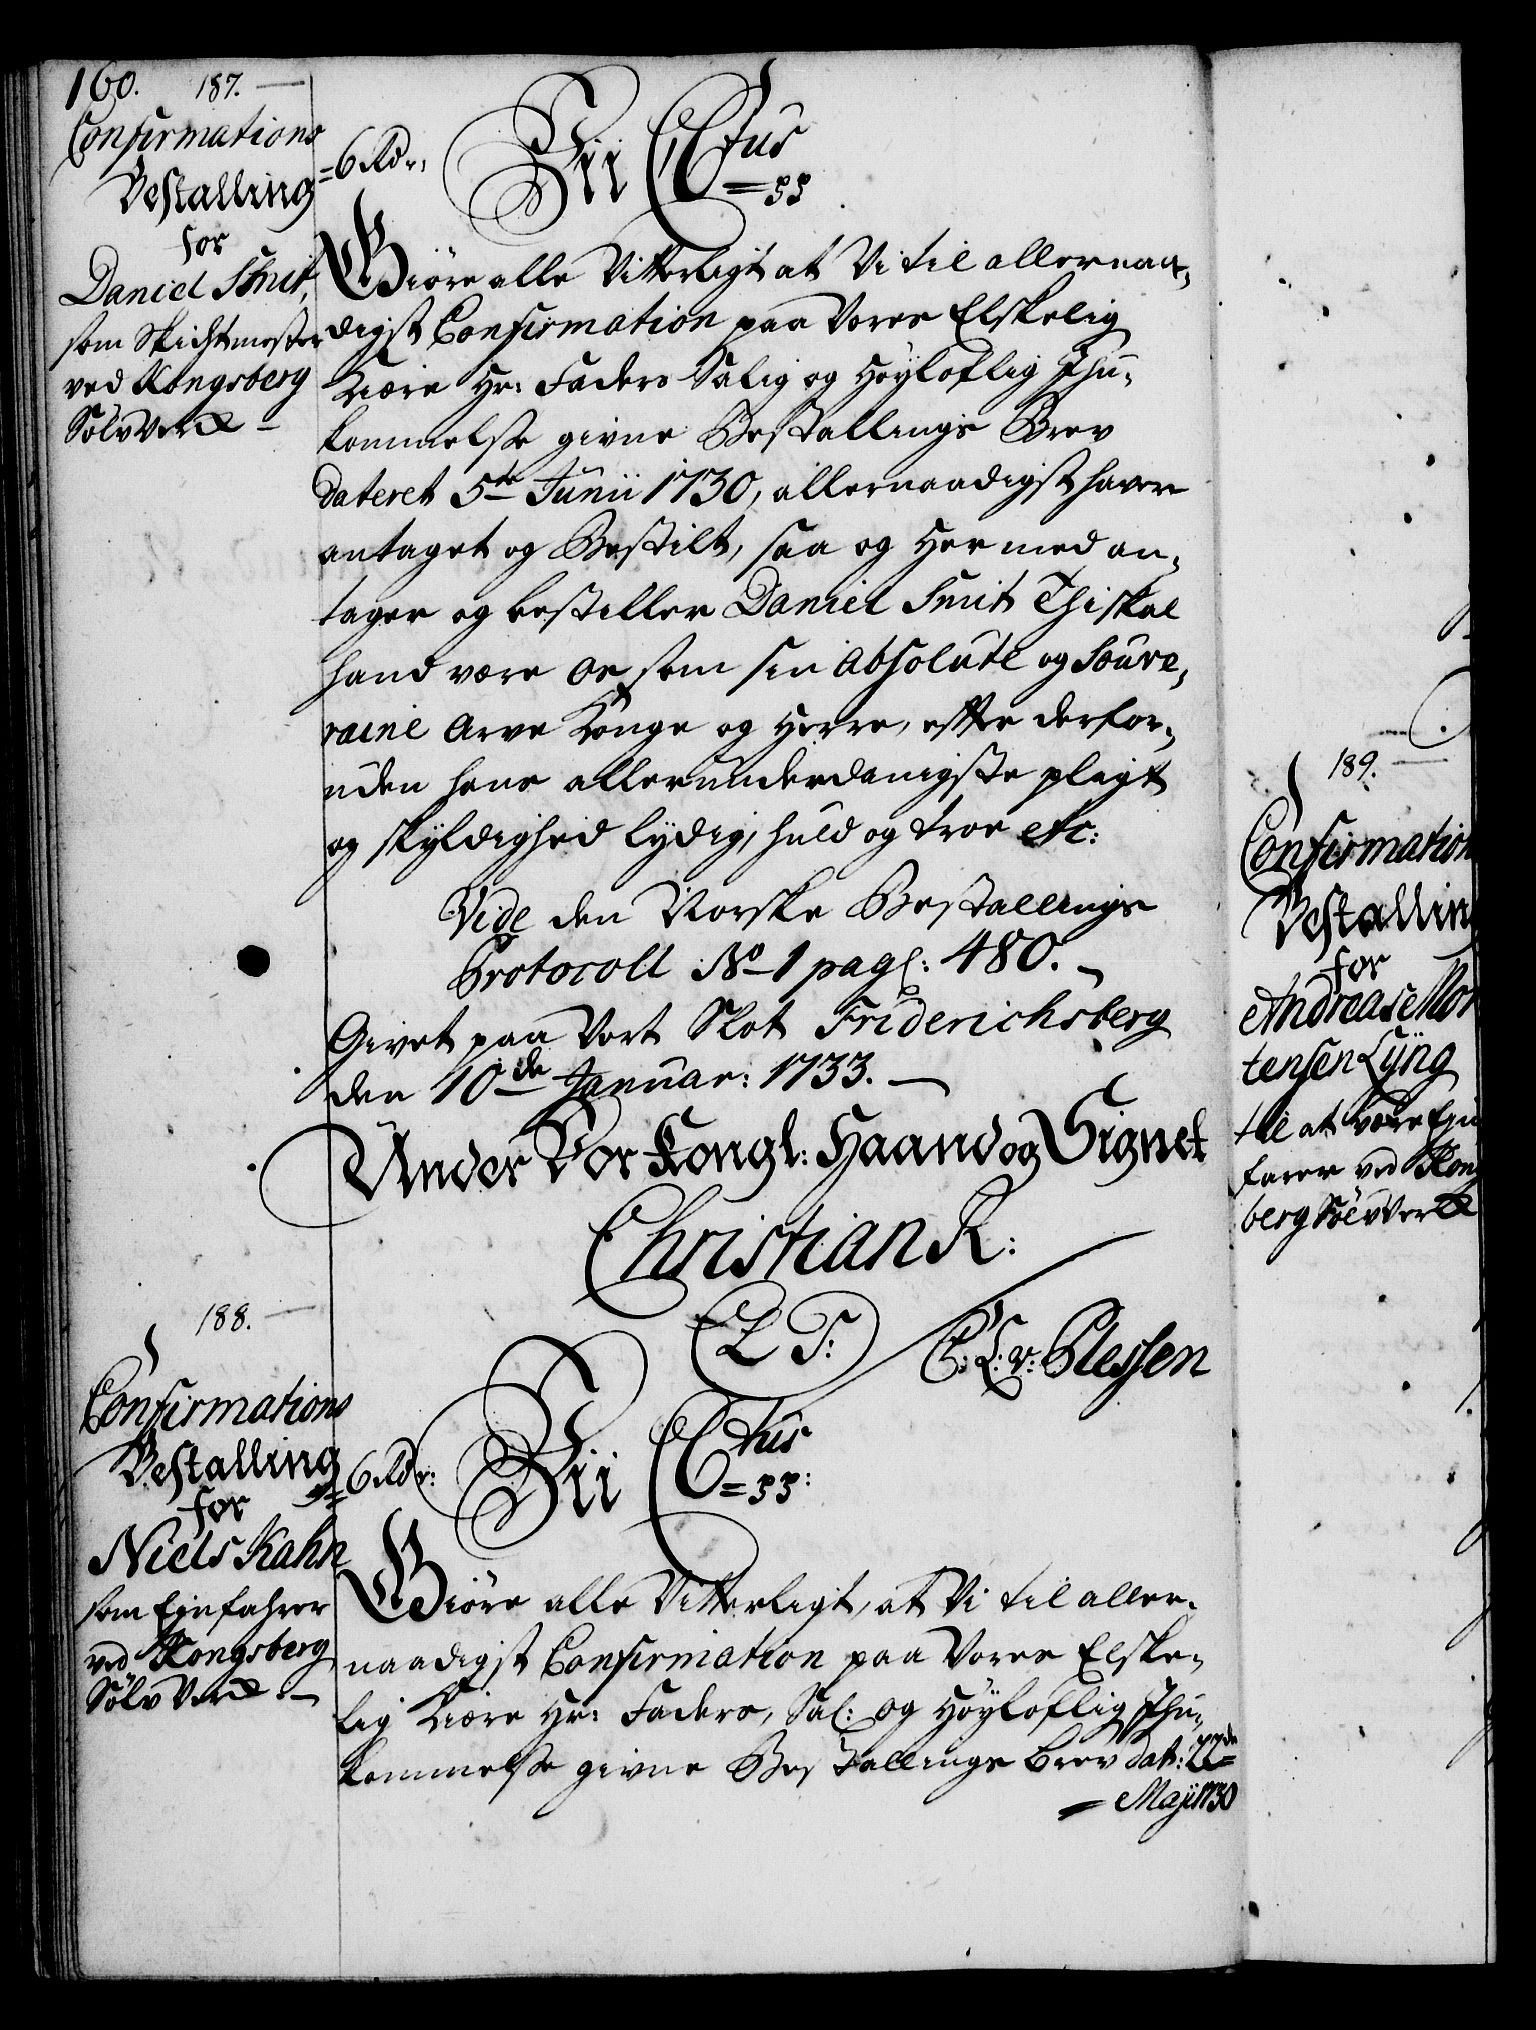 160. 187.
Confirmations
Bestalling
for
Daniel Smit,
som Skichtmester
ved Kongsberg
Sølv Verk
=6 Rdr:
Vii C6tus
Giöre alle Vitterligt at Vi til allernaa-
digst Confirmation paa Vores Elskelig
Kiære Hr: Faders Salig og Høyloflig Ihu-
kommelse givne Bestallings Brev
dateret 5te Junii 1730, allernaadigst haver
antaget og Bestilt, saa og Hermed an-
tager og bestiller Daniel Smit Thi skal
hand være os som sin Absolute og Souve-
raine Arve Konge og Herre, efter derfor-
uden hans allerunderdanigste pligt
og skyldighed lydig, huld og troe etc:
Vide den Norske Bestallings
Protocoll No 1 pag: 480.
Givet paa Vort Slot Friderichsberg
den 10de Januar: 1733.
Under Vor Kongl: Haand og Signet
Christian R:
(L S:)
C: A: v: Plessen
188.
Confirmations
Bestalling
for
Niels Kahn
som Einfahrer
ved Kongsberg
Sølv Verk
=6 Rdr:
Vii C6tus
Giöre alle Vitterligt, at Vi til aller-
naadigst Confirmation paa Vores Elske-
lig Kiære Hr: Faders, Sal: og Høyloflig Ihu-
kommelse givne Bestallings brev dat: 22de
Maji 1730
189.
Confirmation
Bestalling
for
Andreas Mor
tensen Lyng
til at være Ein
farer ved Kong
berg Sølv Verk